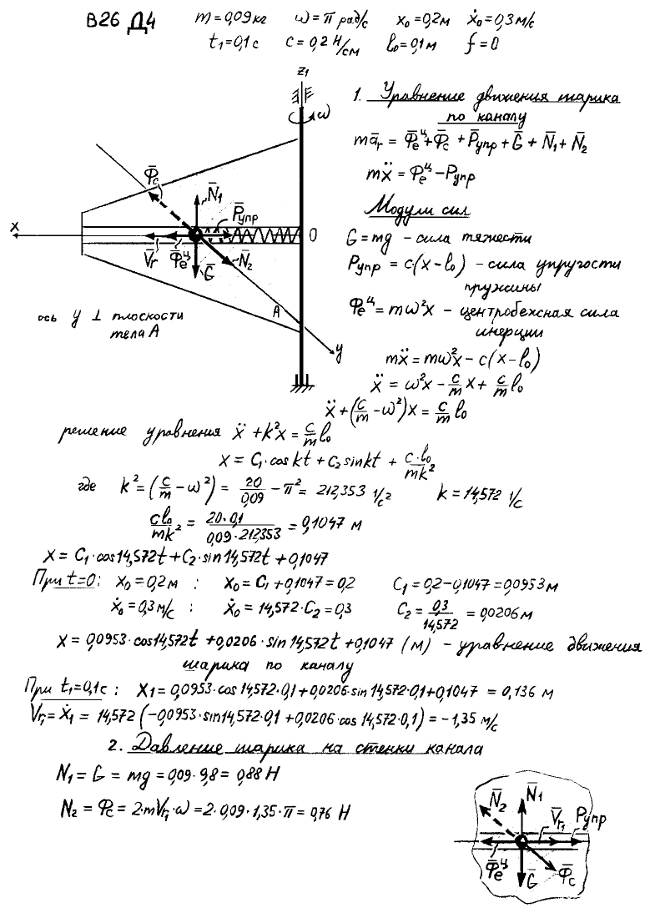 В26 Д4 m=0,09кг ω=π рад/с x₀=0,2м ẋ₀=0,3 м/с
t₁=0,1 с c=0,2 Н/см l₀=0,1м f=0
z₁
ω
1. Уравнение движения шарика
по каналу
mā_r = Φ̄ₑᶜ̧ + Φ̄_c + P̄упр + Ḡ + N̄₁ + N̄₂
mẍ = Φₑᶜ̧ − Pупр
Φ̄_c
N̄₁
P̄упр
x
0
V̄r Φ̄ₑᶜ̧ Ḡ N̄₂
A
y
ось y ⊥ плоскости
тела А
Модули сил
G = mg – сила тяжести
Pупр = c(x−l₀) – сила упругости
пружины
Φₑᶜ̧ = mω²x – центробежная сила
инерции
mẍ = mω²x − c(x−l₀)
ẍ = ω²x − c/m x + c/m l₀
ẍ + (c/m − ω²)x = c/m l₀
решение уравнения ẍ + k²x = c/m l₀
x = C₁·cos kt + C₂ sin kt + c·l₀/mk²
где k² = (c/m − ω²) = 20/0,09 − π² = 212,353 1/с² k = 14,572 1/с
cl₀/mk² = 20·0,1/0,09·212,353 = 0,1047 м
x = C₁·cos14,572t + C₂·sin14,572t + 0,1047
При t=0: x₀=0,2м : x₀ = C₁ + 0,1047 = 0,2 C₁ = 0,2−0,1047 = 0,0953 м
ẋ₀=0,3 м/с : ẋ₀ = 14,572·C₂ = 0,3 C₂ = 0,3/14,572 = 0,0206 м
x = 0,0953·cos14,572t + 0,0206·sin14,572t + 0,1047 (м) – уравнение движения
шарика по каналу
При t₁=0,1с: x₁ = 0,0953·cos14,572·0,1 + 0,0206·sin14,572·0,1 + 0,1047 = 0,136 м
Vr₁ = ẋ₁ = 14,572(−0,0953·sin14,572·0,1 + 0,0206·cos14,572·0,1) = −1,35 м/с
2. Давление шарика на стенки канала
N₁ = G = mg = 0,09·9,8 = 0,88 Н
N₂ = Φ_c = 2·mVr₁·ω = 2·0,09·1,35·π = 0,76 Н
N̄₂ N̄₁
V̄r₁ P̄упр
Φ̄ₑᶜ̧ Ḡ Φ̄_c